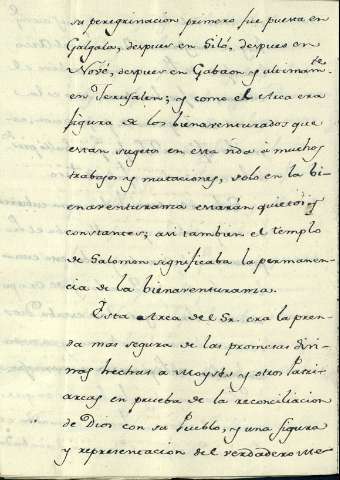 su peregrinacion primero fue puesta en
Galgala, despues en Siló, despues en
Nobé, despues en Gabaon y ultimam.te
en Jerusalen; y como el Arca era
figura de los bienaventurados que
estan sugetos en esta vida á muchos
trabajos y mutaciones, solo en la bi-
enaventuranza estarán quietos y
constantes; asi tambien el templo
de Salomon significaba la permanen-
cia de la bienaventuranza.
Esta Arca del Sr. era la pren-
da mas segura de las promesas divi-
nas hechas a Moysés y otros Patri-
arcas en prueba de la reconciliacion
de Dios con su Pueblo, y una figura
y representacion del verdadero Me-